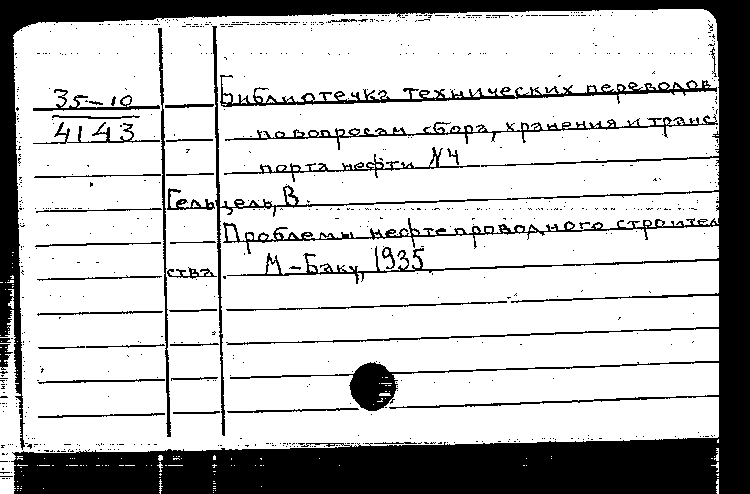 35-10
4143
Библиотечка технических переводов
по вопросам сбора, хранения и транс
порта нефти №4
Гельцель, В.
Проблемы нефтепроводного строител
ства М-Баку, 1935